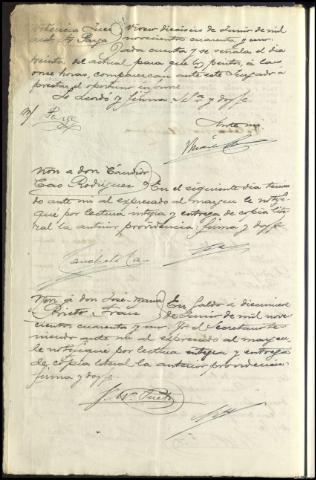 Providencia Juez) Vivero dieciseis de Junio de mil
novecientos cuarenta y uno.
Dada cuenta y se señala el dia
treinta del actual para que los peritos, á las
once horas, comparezcan ante este Juzgado a
prestar el oportuno informe.
Lo acordó y firma S.Sª y doy fe
Ante mi
Non a don Cándido
Cao Rodriguez) En el siguiente dia tenien
do ante mi al expresado al margen le notifi
qué por lectura integra y entrega de copia lite
ral la anterior providencia, firma y doy fe
Candido Cao
Non á don José-Maria) En Galdo a diecinueve
Prieto Franco de Junio de mil nove
cientos cuarenta y uno. Yo el Secretario te
niendo ante mi al expresado al margen
le notifiqué por lectura integra y entrega
de copia literal la anterior providencia
firma y doy fe
J. Mª Prieto